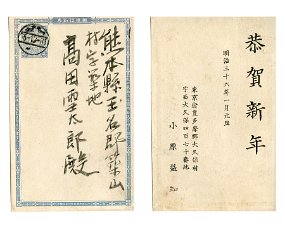 熊本縣玉名郡葉山
村字草地
高田雲太郎殿
恭賀新年
明治三十六年一月元旦
東京府豊多摩郡大久保村
字西大久保四百七十番地
小原益知